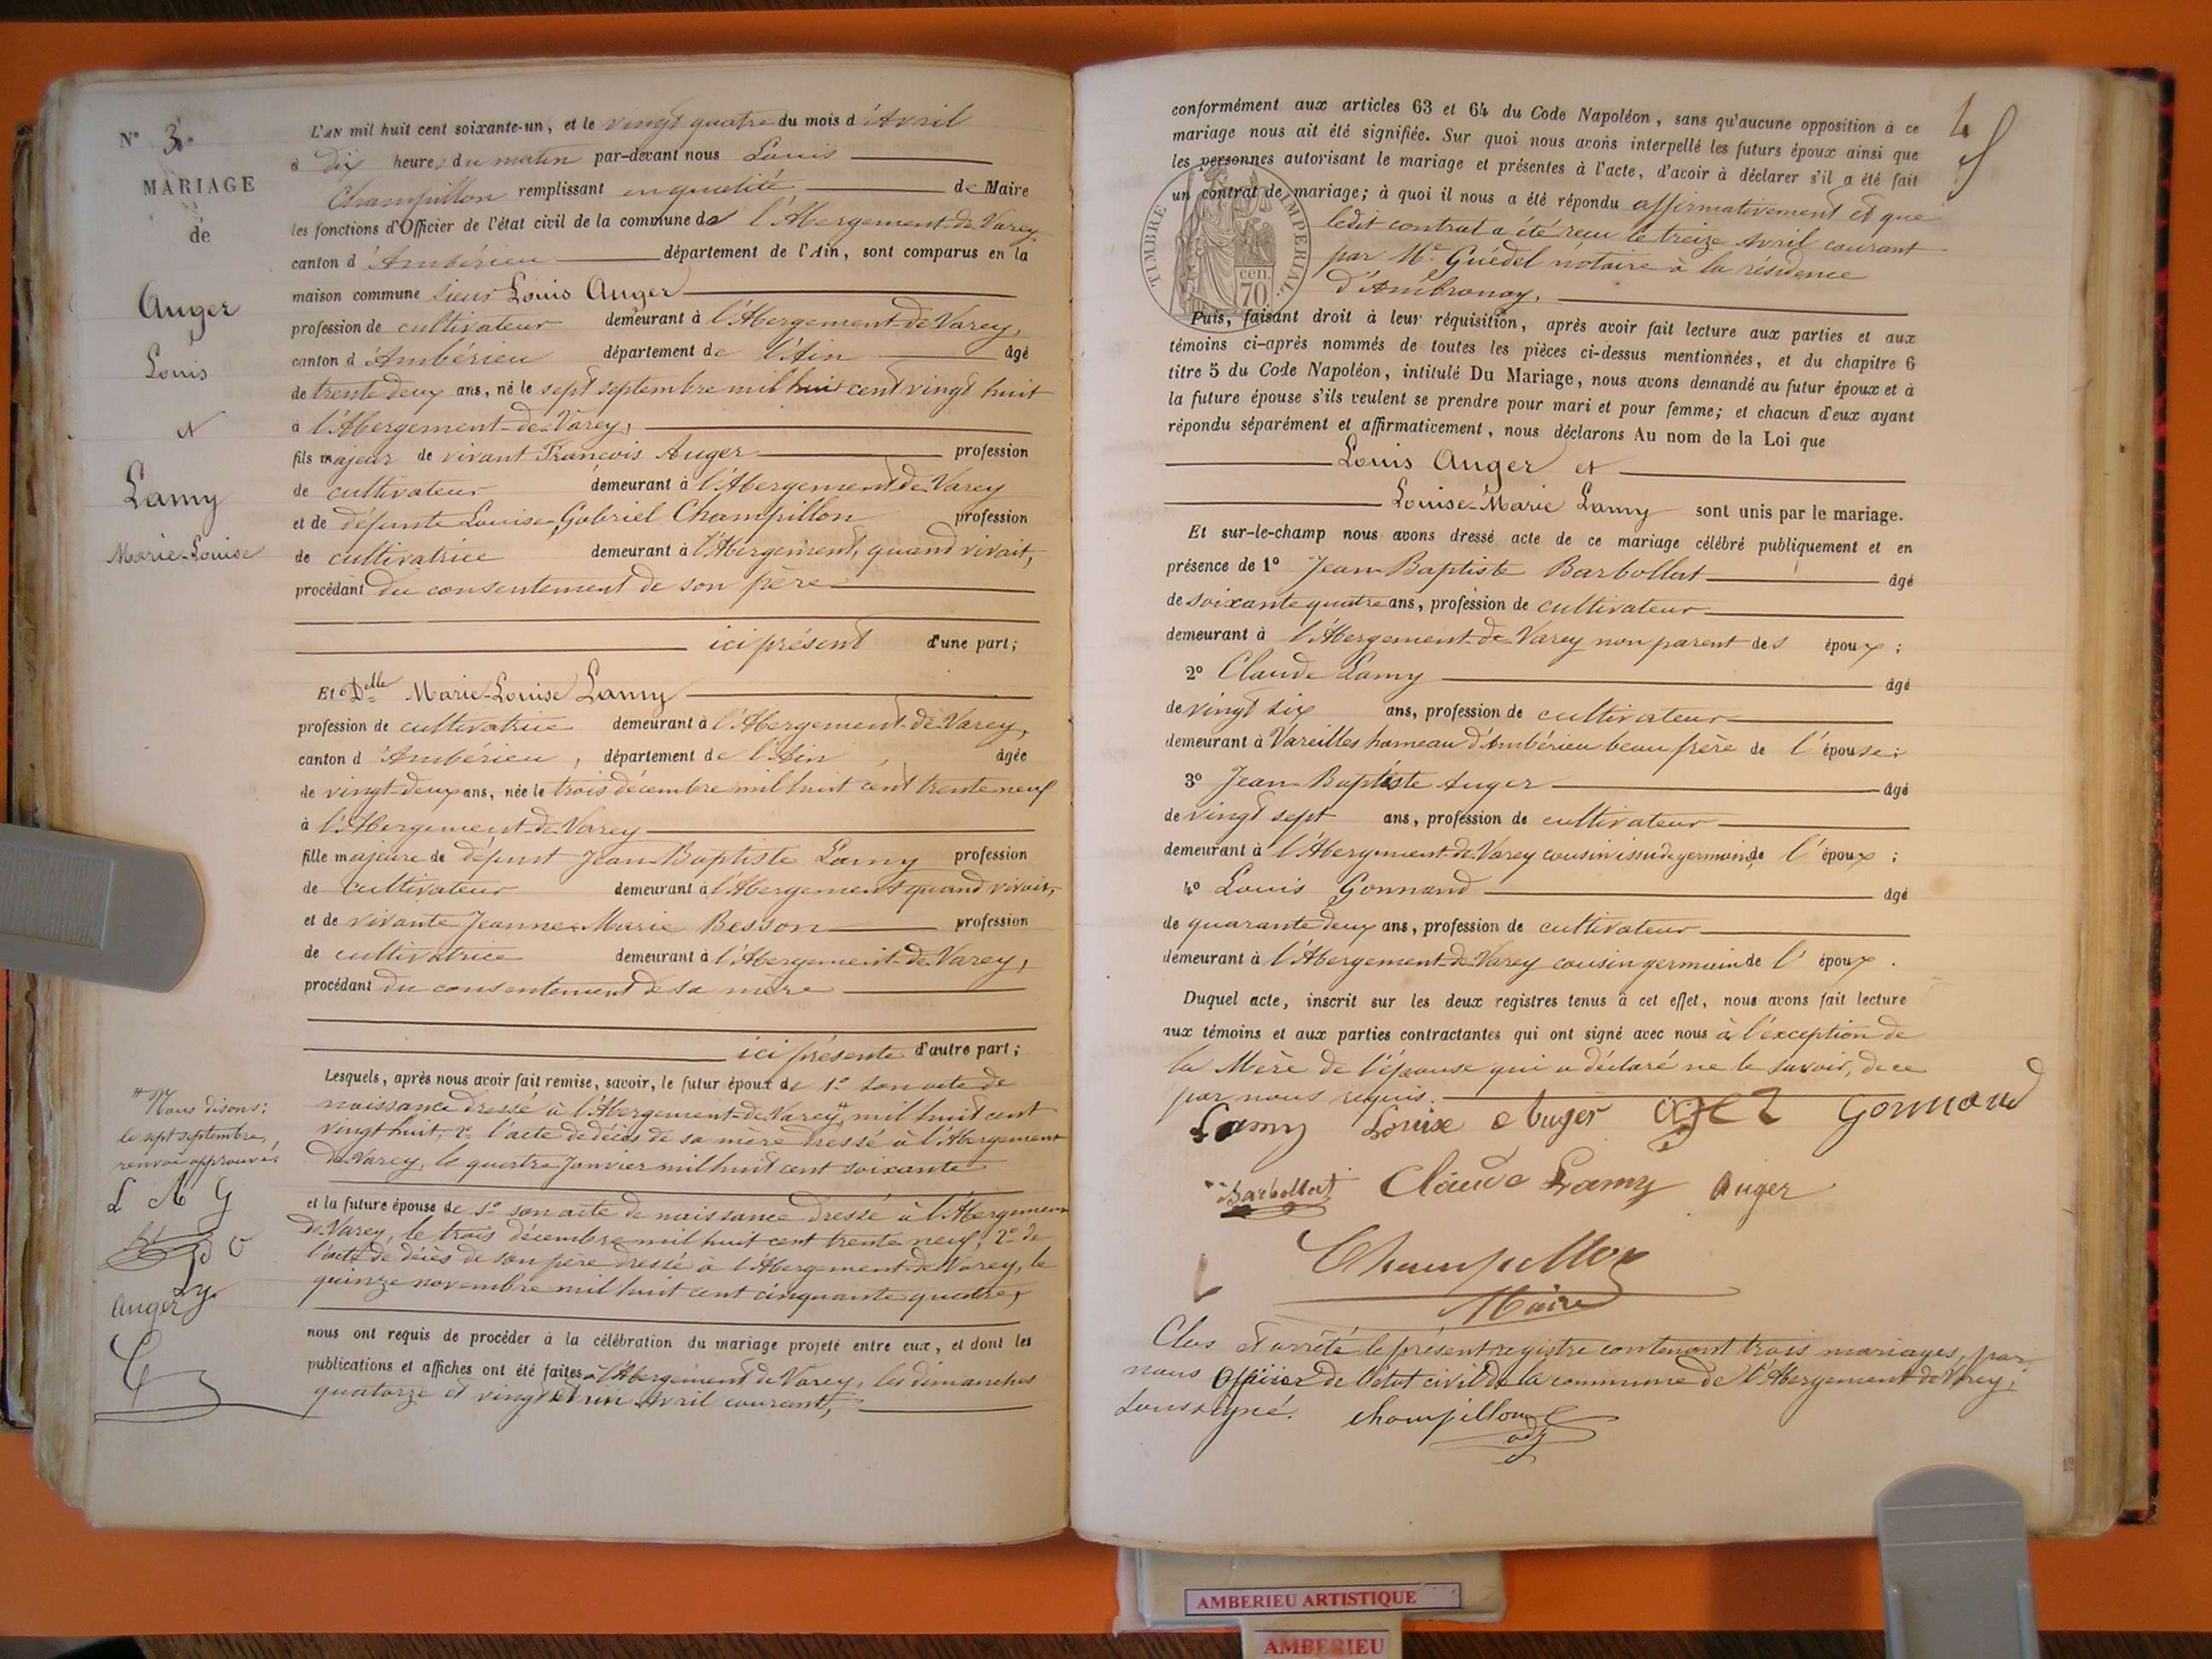 N° 3.
MARIAGE
de
Auger
Louis
et
Lamy
Marie-Louise
L'AN mil huit cent soixante-un, et le vingt quatre du mois d'Avril
à dix heures du matin par-devant nous Louis
Champillon remplissant en qualité de Maire
les fonctions d'Officier de l'état civil de la commune de l'Abergement-de-Varey,
canton d'Ambérieu département de l'Ain, sont comparus en la
maison commune sieur Louis Auger
profession de cultivateur demeurant à l'Abergement-de-Varey,
canton d'Ambérieu département de l'Ain âgé
de trente deux ans, né le sept septembre mil huit cent vingt huit
à l'Abergement-de-Varey,
fils majeur de vivant François Auger profession
de cultivateur demeurant à l'Abergement-de-Varey
et de défunte Louise Gabriel Champillon profession
de cultivatrice demeurant à l'Abergement, quand vivait,
procédant du consentement de son père
ici présent d'une part;
Et Delle Marie-Louise Lamy
profession de cultivatrice demeurant à l'Abergement-de-Varey,
canton d'Ambérieu, département de l'Ain, âgée
de vingt-deux ans, née le trois décembre mil huit cent trente neuf
à l'Abergement-de-Varey
fille majeure de défunt Jean-Baptiste Lamy profession
de cultivateur demeurant à l'Abergement quand vivait,
et de vivante Jeanne-Marie Besson profession
de cultivatrice demeurant à l'Abergement-de-Varey,
procédant du consentement de sa mère
ici présente d'autre part;
Lesquels, après nous avoir fait remise, savoir, le futur époux de 1° son acte de
naissance dressé à l'Abergement-de-Varey, # mil huit cent
vingt huit, 2° l'acte de décès de sa mère dressé à l'Abergement
de-Varey, le quatre Janvier mil huit cent soixante
et la future épouse de 1° son acte de naissance dressé à l'Abergement
de-Varey, le trois décembre mil huit cent trente neuf, 2° de
l'acte de décès de son père dressé à l'Abergement-de-Varey, le
quinze novembre mil huit cent cinquante quatre,
nous ont requis de procéder à la célébration du mariage projeté entre eux, et dont les
publications et affiches ont été faites à l'Abergement de Varey, les dimanches
quatorze et vingt et un Avril courant,
# Nous disons:
le sept septembre,
renvoi approuvé.
L A G
Ly.
Auger
conformément aux articles 63 et 64 du Code Napoléon, sans qu'aucune opposition à ce
mariage nous ait été signifiée. Sur quoi nous avons interpellé les futurs époux ainsi que
les personnes autorisant le mariage et présentes à l'acte, d'avoir à déclarer s'il a été fait
un contrat de mariage; à quoi il nous a été répondu affirmativement et que
ledit contrat a été reçu le treize Avril courant
par Me Guédel notaire à la résidence
d'Ambronay.
TIMBRE IMPERIAL
cen.
70
4
Puis, faisant droit à leur réquisition, après avoir fait lecture aux parties et aux
témoins ci-après nommés de toutes les pièces ci-dessus mentionnées, et du chapitre 6
titre 5 du Code Napoléon, intitulé Du Mariage, nous avons demandé au futur époux et à
la future épouse s'ils veulent se prendre pour mari et pour femme; et chacun d'eux ayant
répondu séparément et affirmativement, nous déclarons Au nom de la Loi que
Louis Auger et
Louise-Marie Lamy sont unis par le mariage.
Et sur-le-champ nous avons dressé acte de ce mariage célébré publiquement et en
présence de 1° Jean-Baptiste Barbollat âgé
de soixante quatre ans, profession de cultivateur
demeurant à l'Abergement-de-Varey non parent des époux;
2° Claude Lamy âgé
de vingt six ans, profession de cultivateur
demeurant à Vareilles hameau d'Ambérieu beau frère de l'épouse;
3° Jean-Baptiste Auger âgé
de vingt sept ans, profession de cultivateur
demeurant à l'Abergement-de-Varey cousin issu de germain de l'époux;
4° Louis Gonnand âgé
de quarante deux ans, profession de cultivateur
demeurant à l'Abergement-de-Varey cousin germain de l'époux.
Duquel acte, inscrit sur les deux registres tenus à cet effet, nous avons fait lecture
aux témoins et aux parties contractantes qui ont signé avec nous à l'exception de
la Mère de l'épouse qui a déclaré ne le savoir, de ce
par nous requis.
Lamy Louise Auger Gonnand
Barbollat Claude Lamy Auger
Champillon
Maire
Clos et arrêté le présent registre contenant trois mariages, par
nous Officier de l'état civil de la commune de l'Abergement de Varey,
soussigné. Champillon
adj
AMBERIEU ARTISTIQUE
AMBERIEU